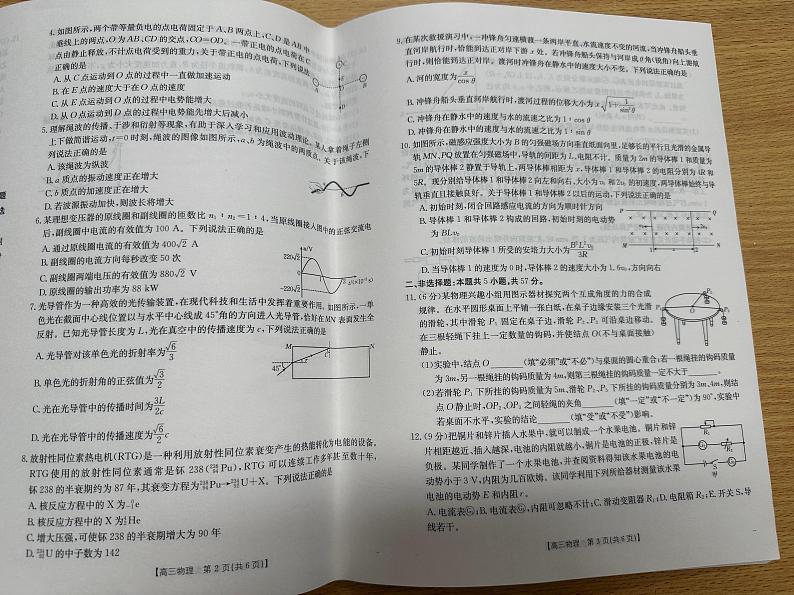 4. 如图所示,两个带等量负电的点电荷固定于 A、B 两点上,C、D 是 AB 中
垂线上的两点,O 为 AB、CD 的交点,CO=OD。一带正电的点电荷在 C
点由静止释放,不计点电荷受到的重力,关于带正电的点电荷,下列说法
正确的是
A. 从 C 点运动到 O 点的过程中一直做加速运动
B. 在 E 点的速度大于在 O 点的速度
C. 从 O 点到 D 点的过程中电势能增大
D. 从 O 点运动到 D 点的过程中电势能先增大后减小
5. 理解绳波的传播、干涉和衍射等现象,有助于深入学习和应用波动理论。某人拿着绳子左侧
上下做简谐运动,t=0 时刻,绳波的图像如图所示,a、b 为绳波中的两质点。关于该绳波,下
列说法正确的是
A. 该绳波为纵波
B. a 质点的振动速度正在增大
C. b 质点的加速度正在增大
D. 若波源振动加快,则波长将增大
6. 某理想变压器的原线圈和副线圈的匝数比 n₁ : n₂=1 : 4,当原线圈接入图中的正弦交流电
后,副线圈中电流的有效值为 100 A。下列说法正确的是
A. 通过原线圈电流的有效值为 400√2 A
B. 副线圈的电流方向每秒改变 50 次
C. 副线圈两端电压的有效值为 880√2 V
D. 原线圈的输出功率为 88 kW
u/V
220√2
-220√2
t/(×10⁻² s)
7. 光导管作为一种高效的光传输装置,在现代科技和生活中发挥着重要作用。如图所示,一单
色光在截面中心线位置以与水平中心线成 45°角的方向进入光导管,恰好在 MN 表面发生全
反射。已知光导管长度为 L,光在真空中的传播速度为 c,下列说法正确的是
A. 光导管对该单色光的折射率为√6/3
B. 单色光的折射角的正弦值为√3/2
C. 光在光导管中的传播时间为3L/2c
D. 光在光导管中的传播速度为√6/2 c
M N
45°
8. 放射性同位素热电机(RTG)是一种利用放射性同位素衰变产生的热能转化为电能的设备。
RTG 使用的放射性同位素通常是钚 238(²³⁸₉₄Pu),RTG 可以连续工作多年甚至数十年,
钚 238 的半衰期约为 87 年,其衰变方程为²³⁸₉₄Pu→²³⁴₉₂U+X。下列说法正确的是
A. 核反应方程中的 X 为⁰₋₁e
B. 核反应方程中的 X 为⁴₂He
C. 增大压强,可使钚 238 的半衰期增大为 90 年
D. ²³⁴₉₂U 的中子数为 142
【高三物理 第 2 页(共 6 页)】
9. 在某次救援演习中,一冲锋舟匀速横渡一条两岸平直、水流速度不变的河流,当冲锋舟船头垂
直河岸航行时,恰能到达正对岸下游 x 处。若冲锋舟船头保持与河岸成 θ 角(锐角)向上游航
行时,则恰能到达正对岸。渡河时冲锋舟在静水中的速度大小不变。下列说法正确的是
A. 河的宽度为x/cos θ
B. 冲锋舟船头垂直河岸航行时,渡河过程的位移大小为 x√(1+1/sin²θ)
C. 冲锋舟在静水中的速度与水的流速之比为 1 : cos θ
D. 冲锋舟在静水中的速度与水的流速之比为 1 : sin θ
10. 如图所示,磁感应强度大小为 B 的匀强磁场方向垂直纸面向里,足够长的平行且光滑的金属导
轨 MN、PQ 放置在匀强磁场中,导轨的间距为 L,电阻不计。质量为 2m 的导体棒 1 和质量为
5m 的导体棒 2 静置于导轨上,两导体棒相距为 x,导体棒 1 和导体棒 2 的电阻分别为 4R 和
5R。现分别给导体棒 1 和导体棒 2 向左和向右、大小为 v₀ 和 2v₀ 的初速度,两导体棒始终与导
轨垂直且接触良好。关于导体棒 1 和导体棒 2 以后的运动,下列说法正确的是
A. 初始时刻,闭合回路感应电流的方向为顺时针方向
B. 导体棒 1 和导体棒 2 构成的回路,初始时刻的电动势
为 BLv₀
C. 初始时刻导体棒 1 所受的安培力大小为B²L²v₀/3R
D. 当导体棒 1 的速度为 0 时,导体棒 2 的速度大小为 1.6v₀,方向向右
P Q
M N
1 2
二、非选择题:本题共 5 小题,共 57 分。
11. (6 分)某物理兴趣小组用图示器材探究两个互成角度的力的合成
规律。在水平圆形桌面上平铺一张白纸,在桌子边缘安装三个光滑
的滑轮,其中滑轮 P₁ 固定在桌子边,滑轮 P₂、P₃ 可沿桌边移动。
在三根轻绳下挂上一定数量的钩码,并使结点 O(不与桌面接触)
静止。
P₁
P₂
P₃
(1)实验中,结点 O ______(填“必须”或“不必”)与桌面的圆心重合;若一根绳挂的钩码质量
为 3m,另一根绳挂的钩码质量为 4m,则第三根绳挂的钩码质量一定不大于______。
(2)若滑轮 P₁ 下所挂的钩码质量为 5m,滑轮 P₂、P₃ 下所挂的钩码质量分别为 3m、4m,则结
点 O 静止时,OP₂、OP₃ 之间轻绳的夹角______(填“一定”或“不一定”)为 90°,实验中
若桌面不水平,实验的结论______(填“受”或“不受”)影响。
12. (9 分)把铜片和锌片插入水果中,就可以制成一个水果电池。铜片和锌
片相距越近、插入越深,电池的内阻就越小,铜片是电池的正极,锌片是
负极。某同学制作了一个水果电池,并查阅资料得知该水果电池的电
动势小于 3 V,内阻为几百欧姆。该同学利用下列所给器材测量该水果
电池的电动势 E 和内阻 r。
A. 电流表G₁;B. 电流表G₂,内阻可忽略不计;C. 滑动变阻器 R₁;D. 电阻箱 R₂;E. 开关 S、导
线若干。
【高三物理 第 3 页(共 6 页)】